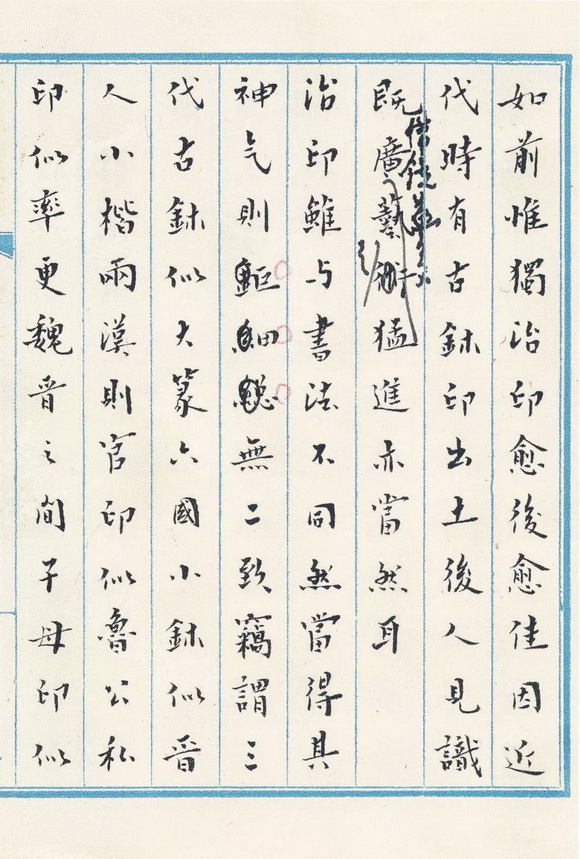 如前惟獨治印愈後愈佳因近
代時有古鉥印出土後人見識
借鏡
既廣藝術猛進亦當然耳
治印雖与書法不同然當得其
神气則無二致竊謂三
代古鉥似大篆六國小鉥似晋
人小楷兩漢則官印似魯公私
印似率更魏晋之間子母印似